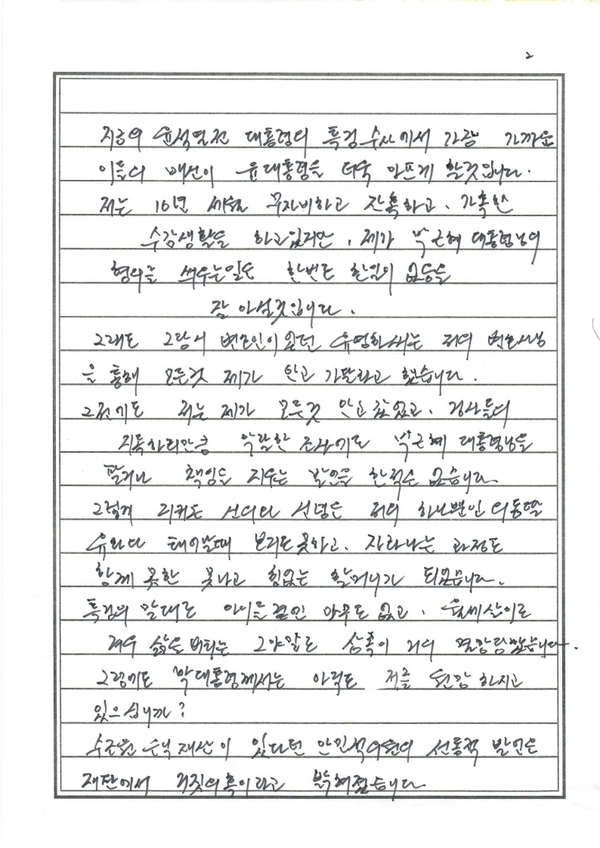 2
지금의 윤석열 전 대통령의 특검 수사에서 가장 가까운
이들의 배신이 윤대통령을 더욱 아프게 할것입니다.
저는 10년 세월 무자비하고 잔혹하고, 가혹한
수감생활을 하고있지만, 제가 박근혜 대통령님의
혐의를 씌우는일은 한번도 한일이 없음을
잘 아실것입니다.
그래도 그당시 변호인이 였던 유영하씨는 저의 변호사님
을 통해 모든것 제가 안고 가달라고 했습니다.
그전에도 저는 제가 모든것 안고 갔었고, 검사들의
지독하리만큼 악랄한 조사에도 박근혜 대통령님을
팔거나 책임을 지우는 발언을 한적은 없습니다
그렇게 지켜온 신의와 신념은 저의 하나뿐인 외동딸
유라와 태어날때 보지도 못하고, 자라나는 과정도
함께 못한 못나고 힘없는 할머니가 되었습니다.
특검의 말대로 아이들 곁엔 아무도 없고, 월세살이로
겨우 삶을 버티는 그야말로 삼족이 거의 멸망당했습니다.
그럼에도 박대통령께서는 아직도 저를 원망 하시고
있으십니까?
수조원 은닉 재산이 있다던 안민석의원의 선동적 발언은
재판에서 거짓의혹이라고 밝혀졌습니다